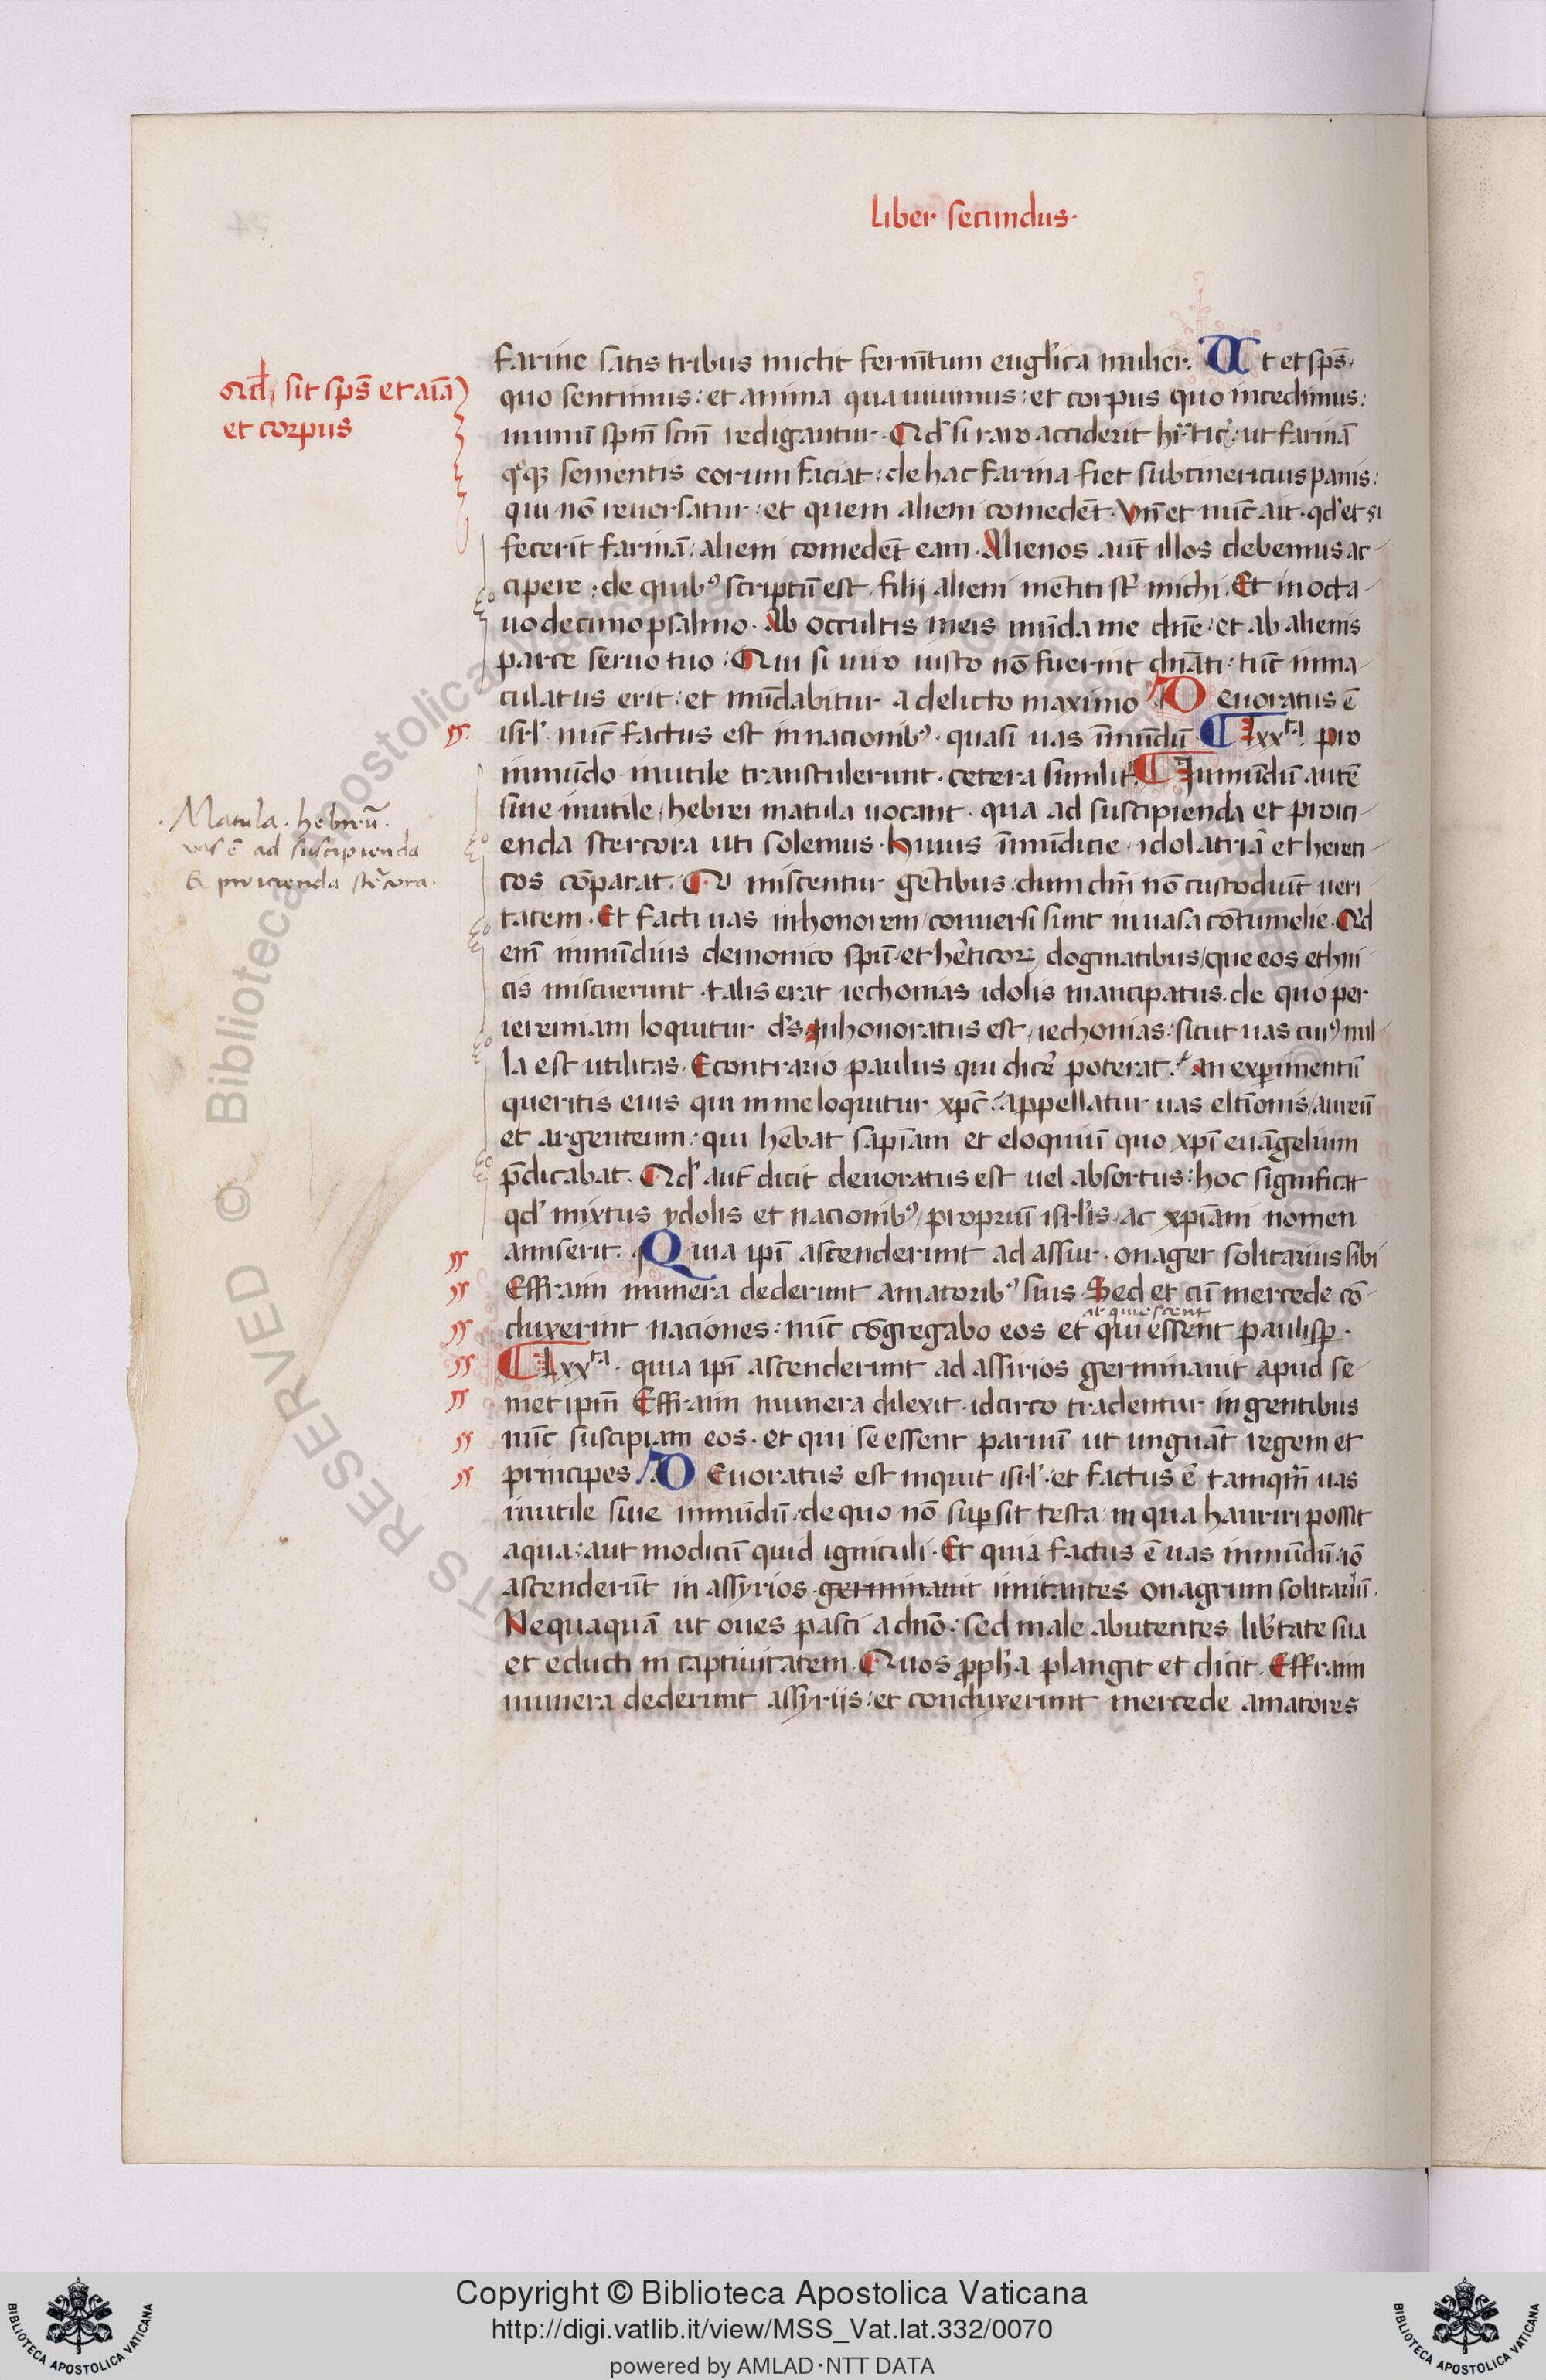 Liber secundus·
Qd' sit sps̄ et aīa
et corpus
farine satis tribus mictit ferm̄tum eugl'ica mulier. Ut et sps̄·
quo sentimus: et anima qua uiuimus: et corpus quo incedimus:
inunū spm̄ scm̄ redigantur. Qd' si raro acciderit ut farinā
qͦqꝫ sementis eorum faciat: de hac farina fiet subcinericius panis:
qui nō reuersatur: et quem alieni comedēt. Vn̄ et nūc ait· qd' et si
fecerīt farinā: alieni comedēt eam. Alienos aūt illos debemus ac-
cipere: de quibꝰ scriptū est· filij alieni mētiti st̄ michi. Et in octa-
uodecimo psalmo. Ab occultis meis mūda me dn̄e: et ab alienis
parce seruo tuo: Qui si uiro iusto nō fuerint dn̄ati: tūc imma-
culatus erit: et mūdabitur a delicto maximo Deuoratus ē
isr̄l' nūc factus est in nacionibꝰ· quasi uas īmūdū. Lxxᵗᵃ· pro
inmūdo· inutile transtulerunt· cetera similit̄. Inmūdū autē
siue inutile· hebrei matula uocant· qua ad suscipienda et proici-
·Matula· hebreū·
vas ē ad suscipienda
& proicienda stēcora·
enda stercora uti solemus. Huius īmūdicie· idolatriā et hereti-
cos cōparat. Qui miscentur gētibus: dum dn̄i nō custodiūt ueri-
tatem. Et facti uas in honorem/ conuersi sunt in uasa cōtumelie. Qd
em̄ inmūdius demonico spū· et hēticoꝝ dogmatibus/ que eos ethni-
cis miscuerunt· talis erat iechonias idolis mancipatus· de quo per
ieremiam loquitur d's. Inhonoratus est iechonias: sicut uas cuiꝰ nul-
la est utilitas. Econtrario paulus qui dicē poterat. An experimentū
queritis eius qui in me loquitur xpc̄: appellatur uas eltīonis/ aureū
et argenteum: qui hēbat sapīam et eloquiū quo xpī euāgelium
p̄dicabat. Qd' aūt dicit deuoratus est uel absortus: hoc significat
qd' mixtus ydolis et nacionibꝰ/ propriū isr̄l'is· ac xpīam nomen
amiserit. Quia ipī ascenderunt ad assur· onager solitarius sibi
Effraim munera dederunt amatoribꝰ suis Sed et cū mercede cō-
al' quiescent
duxerint naciones: nūc cōgregabo eos et qui essent paulisꝑ·
Lxxᵗᵃ· quia ipī ascenderunt ad assirios germinauit apud se-
met ipm̄ Effraim munera dilexit· idcirco tradentur in gentibus
nūc suscipiam eos· et qui se essent paruū ut unguāt regem et
principes. Deuoratus est inquit isr̄l'· et factus ē tamqm̄ uas
inutile siue inmūdū· de quo nō supsit testa in qua hauriri possit
aqua: aut modicū quid igniculi. Et quia factus ē uas inmūdū· iō
ascenderūt in assyrios germinauit imitantes onagrum solitariū.
Nequaquā ut oues pasci a dn̄o: sed male abutentes lib̄tate sua
et educti in captiuitatem. Quos ꝓph̄a plangit et dicit. Effraim
munera dederunt assyrijs: et conduxerunt mercede amatores
Biblioteca Apostolica Vaticana
ALL RIGHTS RESERVED ©
Copyright © Biblioteca Apostolica Vaticana
http://digi.vatlib.it/view/MSS_Vat.lat.332/0070
powered by AMLAD·NTT DATA
BIBLIOTECA APOSTOLICA VATICANA
BIBLIOTECA APOSTOLICA VATICANA